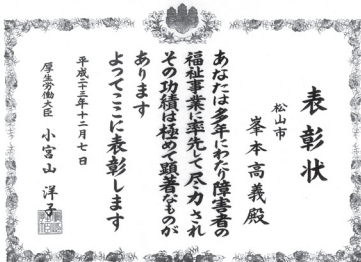 表彰状
松山市
峯本高義殿
あなたは多年にわたり障害者の
福祉事業に率先して尽力され
その功績は極めて顕著なものが
あります
よってここに表彰します
平成二十三年十二月七日
厚生労働大臣 小宮山洋子